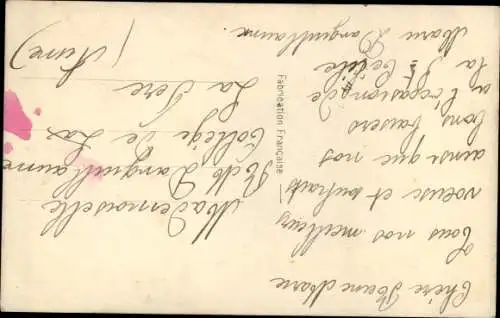 Chère Jeanne Marie
Tous nos meilleurs
voeux et souhaits
ainsi que nos
bons baisers
a l'occasion de
la Ste Cécile
Marie Danguillaume.
Fabrication Française
Mademoiselle
Danguillaume
Collège de
La Fère
(Aisne)